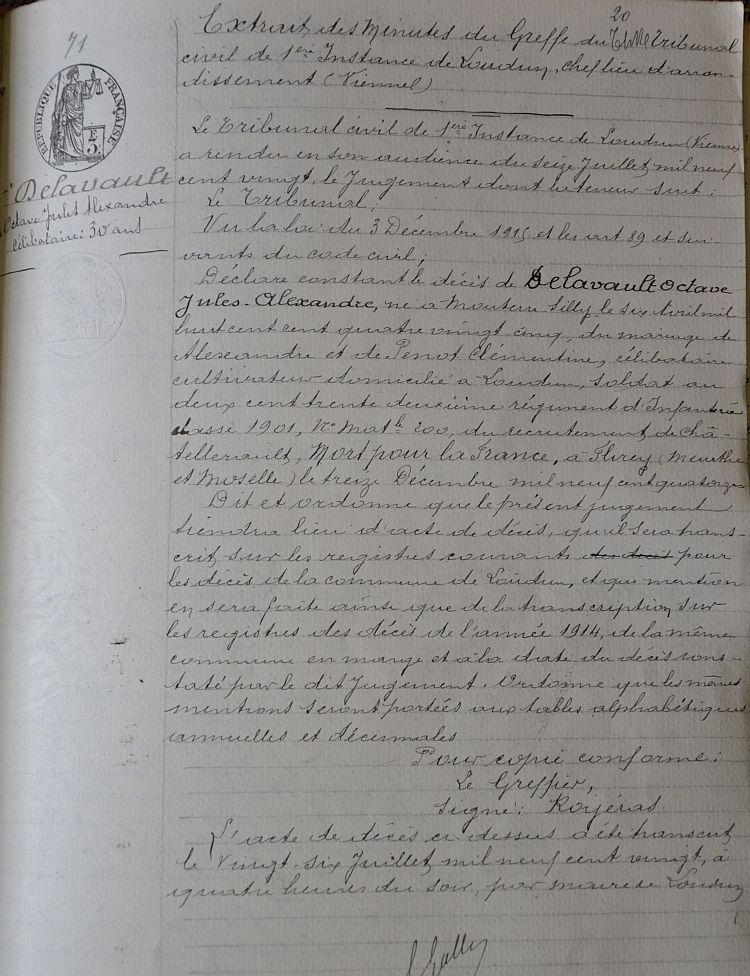 20
71
Extrait des Minutes du Greffe du tribunal
civil de 1ère Instance de Loudun, chef lieu d'arron-
dissement (Vienne)
RÉPUBLIQUE FRANÇAISE
3
F
Delavault
Octave Jules Alexandre
célibataire: 30 ans
Le Tribunal civil de 1ère Instance de Loudun (Vienne)
a rendu en son audience du seize Juillet mil neuf
cent vingt, le Jugement dont la teneur suit:
Le Tribunal,
Vu la loi du 3 Décembre 1915 et les art 89 et sui-
vants du code civil;
Déclare constant le décès de Delavault Octave
Jules-Alexandre, né à Mouterre Silly le six Avril mil
huit cent cent quatre vingt cinq, du mariage de
Alexandre et de Penot Clémentine, célibataire
cultivateur domicilié à Loudun, soldat au
deux cent trente deuxième régiment d'Infanterie
classe 1901, No Matle 200, du recrutement de Châ-
tellerault, Mort pour la France, à Flirey (Meurthe
et Moselle) le treize Décembre mil neuf cent quatorze
Dit et ordonne que le présent jugement
tiendra lieu d'acte de décès, qu'il sera trans-
crit, sur les registres courants des décès pour
les décès de la commune de Loudun, et que mention
en sera faite ainsi que de la transcription sur
les registres des décès de l'année 1914, de la même
commune en marge et à la date du décès cons-
taté par le dit Jugement. Ordonne que les mêmes
mentions seront portées aux tables alphabétiques
annuelles et décennales
Pour copie conforme:
Le Greffier,
Signé: Royéras.
L'acte de décès ci-dessus a été transcrit,
le Vingt-six Juillet, mil neuf cent vingt, à
quatre heures du soir, par maire de Loudun